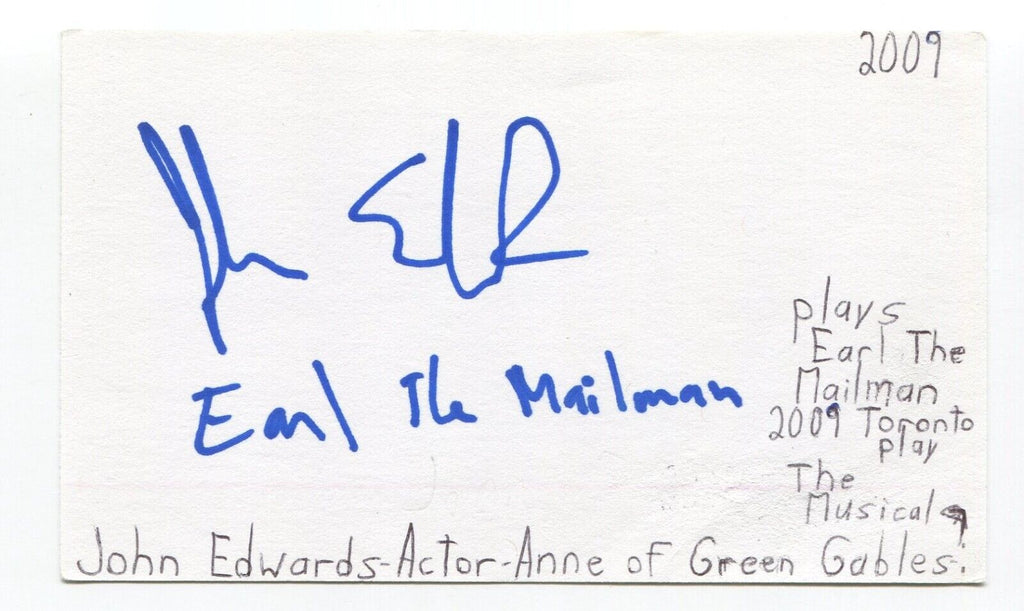 2009
Earl The Mailman
plays
Earl The
Mailman
2009 Toronto
play
The
Musical
John Edwards-Actor-Anne of Green Gables: